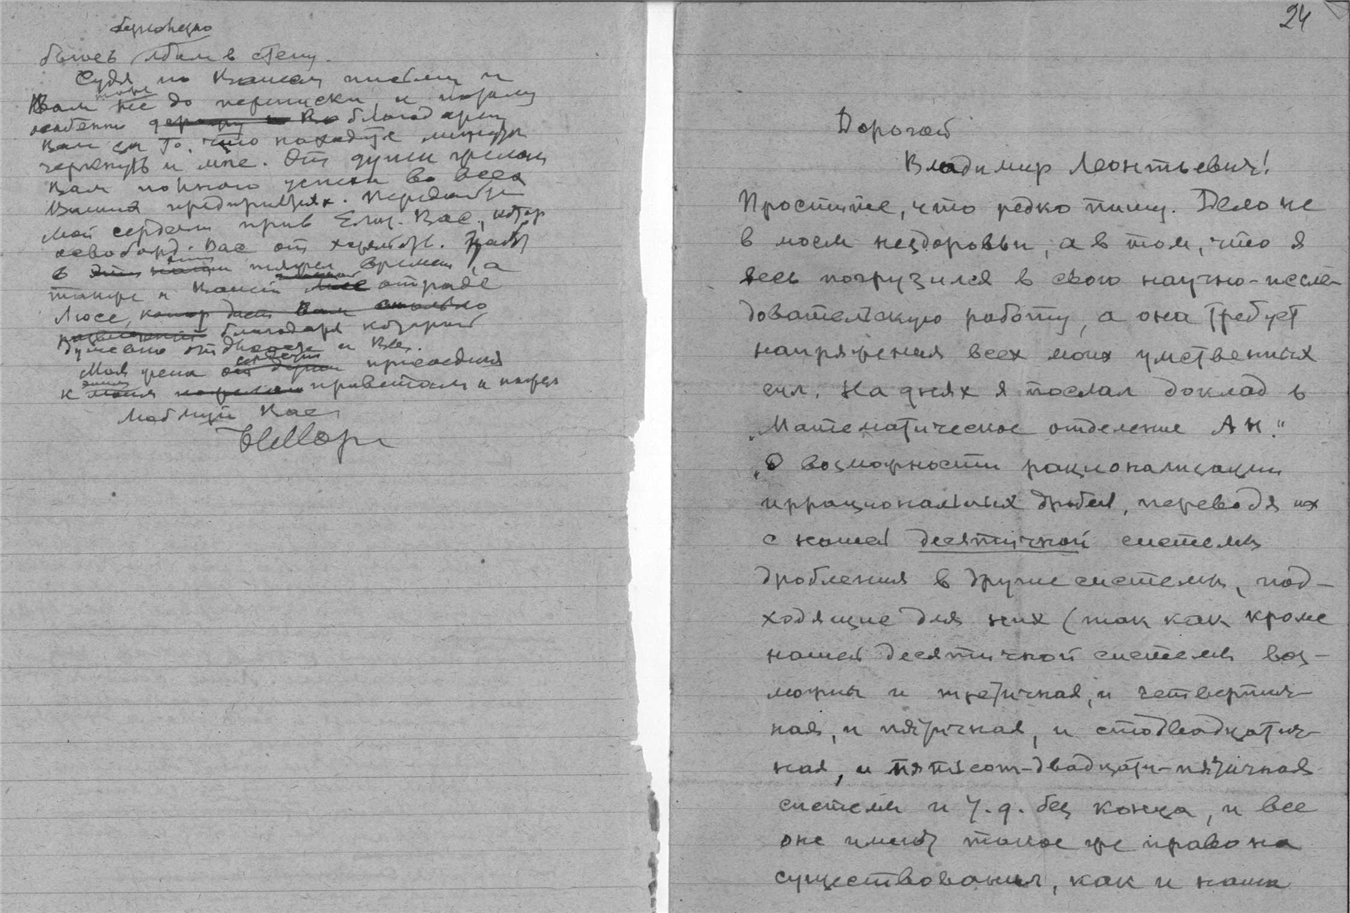 бесполезно
биться лбом в стену.
Судя по Вашему письму и
Вам тоже не до переписки, и потому
особенно благодарю
Вам за то, что находите минуты
черкнуть и мне. От души желаю
Вам полного успеха во всех
Ваших предприятиях. Передайте
мой сердечн. прив. Елиз. Вас.,
освобожд. Вас от хозяйств.
в наши времена, а
также и Вашей отраде
Люсе,
благодаря которой
душевно отдыхаете и Вы.
Моя жена присоедин
к моим приветам и
любящий Вас
НМор
24
Дорогой
Владимир Леонтьевич!
Простите, что редко пишу. Дело не
в моем нездоровьи, а в том, что я
весь погрузился в свою научно-иссле-
довательскую работу, а она требует
напряжения всех моих умственных
сил. На днях я послал доклад в
„Математическое отделение АН."
„О возможности рационализации
иррациональных дробей, переводя их
с нашей десятичной системы
дробления в другие системы, под-
ходящие для них (так как кроме
нашей десятичной системы воз-
можны и троичная, и четвертич-
ная, и пятичная, и стодвадцатич-
ная, и пятьсот-двадцати-пятичная
системы и т.д. без конца, и все
оне имеют такое же право на
существование, как и наша